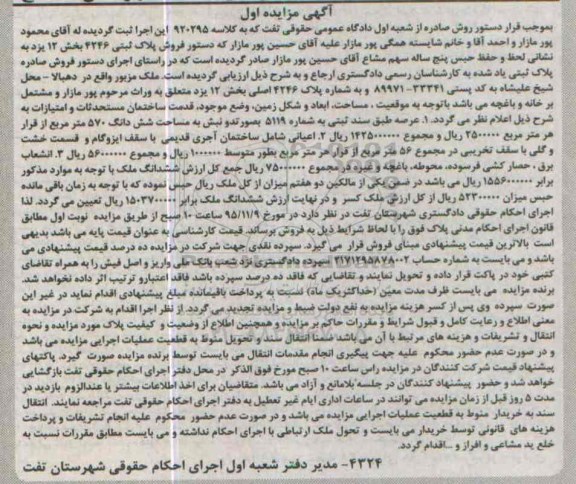 آگهی مزایده اول
بموجب قرار دستور روش صادره از شعبه اول دادگاه عمومی حقوقی تفت که به کلاسه ۹۲۰۲۹۵ این اجرا ثبت گردیده له آقای محمود
پور مازار و احمد آقا و خانم شایسته همگی پور مازار علیه آقای حسین پور مازار که دستور فروش پلاک ثبتی ۴۲۴۶ بخش ۱۲ یزد به
نشانی لحظ و حفظ حبس پنج ساله سهم مشاع آقای حسین پور مازار صادر گردیده است که در راستای اجرای دستور فروش صادره
پلاک ثبتی یاد شده به کارشناسان رسمی دادگستری ارجاع و به شرح ذیل ارزیابی گردیده است. ملک مزبور واقع در دهبالا – محل
شیخ علیشاه به کد پستی ۳۳۳۴۱-۸۹۹۷۱ و به شماره پلاک ۴۲۴۶ اصلی بخش ۱۲ یزد متعلق به وراث مرحوم پور مازار و مشتمل
بر خانه و باغچه می باشد باتوجه به موقعیت ، مساحت، ابعاد و شکل زمین، وضع موجود، قدمت ساختمان مستحدثات و امتیازات به
شرح ذیل اعلام نظر می گردد. ۱. عرصه طبق سند ثبتی به شماره ۵۱۱۹ بصورتدو نبش به مساحت شش دانگ ۵۷۰ متر مربع از قرار
هر متر مربع ۲۵۰۰۰۰۰ ریال و مجموع ۱۴۲۵۰۰۰۰۰۰ ریال ۲. اعیانی شامل ساختمان آجری قدیمی با سقف ایزوگام و قسمت خشت
و گلی با سقف تخریبی در مجموع ۵۶ متر مربع از قرار هر متر مربع بطور متوسط ۱۰۰۰۰۰۰ ریال و مجموع ۵۶۰۰۰۰۰۰ ریال ۳. انشعاب
برق ، حصار کشی فرسوده، محوطه، باغچه و غیره در مجموع ۷۵۰۰۰۰۰۰ ریال جمع کل ارزش ششدانگ ملک با توجه به موارد مذکور
برابر ۱۵۵۶۰۰۰۰۰۰ ریال می باشد در ضمن یکی از مالکین دو هفتم میزان از کل ملک ریال حبس نموده که با توجه به زمان باقی مانده
حبس میزان ۵۲۳۰۰۰۰۰ ریال از کل ارزش ملک کسر و در نهایت ارزش ششدانگ ملک برابر ۱۵۰۳۷۰۰۰۰۰ ریال تعیین می گردد. لذا
اجرای احکام حقوقی دادگستری شهرستان تفت در نظر دارد در مورخ ۹۵/۱۱/۹ ساعت ۱۰ صبح از طریق مزایده نوبت اول مطابق
قانون اجرای احکام مدنی پلاک فوق را با لحاظ شرایط ذیل به فروش برساند. قیمت کارشناسی به عنوان قیمت پایه می باشد بدیهی
است بالاترین قیمت پیشنهادی مبنای فروش قرار می گیرد. سپرده نقدی جهت شرکت در مزایده ده درصد قیمت پیشنهادی می
باشد و می بایست به شماره حساب ۲۱۷۱۲۹۵۸۷۸۰۰۲ سپرده دادگستری نزد شعب بانک ملی واریز و اصل فیش را به همراه تقاضای
کتبی خود در پاکت قرار داده و تحویل نمایند و تقاضایی که فاقد ده درصد سپرده باشد فاقد اعتبارو ترتیب اثر داده نخواهد شد.
برنده مزایده می بایست ظرف مدت معین (حداکثریک ماه) نسبت به پرداخت باقیمانده مبلغ پیشنهادی اقدام نماید در غیر این
صورت سپرده وی پس از کسر هزینه مزایده به نفع دولت ضبط و مزایده تجدید می گردد. از نظر اجرا اقدام به شرکت در مزایده به
معنی اطلاع و رعایت کامل و قبول شرایط و مقررات حاکم بر مزایده و همچنین اطلاع از وضعیت و کیفیت پلاک مورد مزایده و نحوه
انتقال و تشریفات و هزینه های مرتبط با آن می باشد. ضمنا انتقال سند و تحویل منوط به قطعیت عملیات اجرایی مزایده می باشد
و در صورت عدم حضور محکوم علیه جهت پیگیری انجام مقدمات انتقال می بایست توسط برنده مزایده صورت گیرد. پاکتهای
پیشنهاد قیمت شرکت کنندگان در مزایده راس ساعت ۱۰ صبح مورخ فوق الذکر در محل دفتر اجرای احکام حقوقی تفت بازگشایی
خواهد شد و حضور پیشنهاد کنندگان در جلسه بلامانع و آزاد می باشد. متقاضیان برای اخذ اطلاعات بیشتر یا عندالزوم بازدید در
مدت ۵ روز قبل از زمان مزایده می توانند در ساعات اداری ایام غیر تعطیل به دفتر اجرای احکام حقوقی تفت مراجعه نمایند. انتقال
سند به خریدار منوط به قطعیت عملیات اجرایی مزایده می باشد و در صورت عدم حضور محکوم علیه انجام تشریفات و پرداخت
هزینه های قانونی توسط خریدار می بایست و تحول ملک ارتباطی با اجرای احکام نداشته و می بایست مطابق مقررات نسبت به
خلع ید مشاعی و افراز و ...اقدام گردد.
۴۳۲۴- مدیر دفتر شعبه اول اجرای احکام حقوقی شهرستان تفت